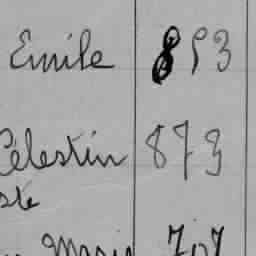 Emile 853
Célestin 873
ste
Marie 707